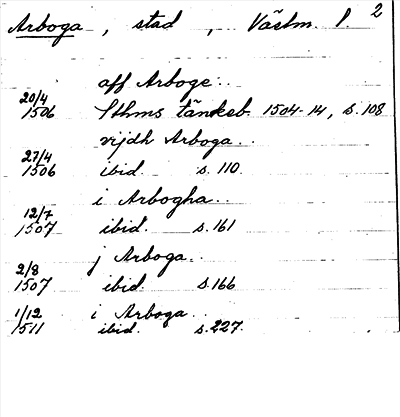 Arboga, stad, Västm. l. 2
aff Arboge..
20/4 1506 Sthms tänkeb. 1504-14, s. 108
vijdh Arboga..
27/4 1506 ibid. s. 110.
i Arbogha..
12/7 1507 ibid. s. 161
j Arboga..
2/8 1507 ibid. s. 166
i Arboga..
1/12 1511 ibid. s. 227.